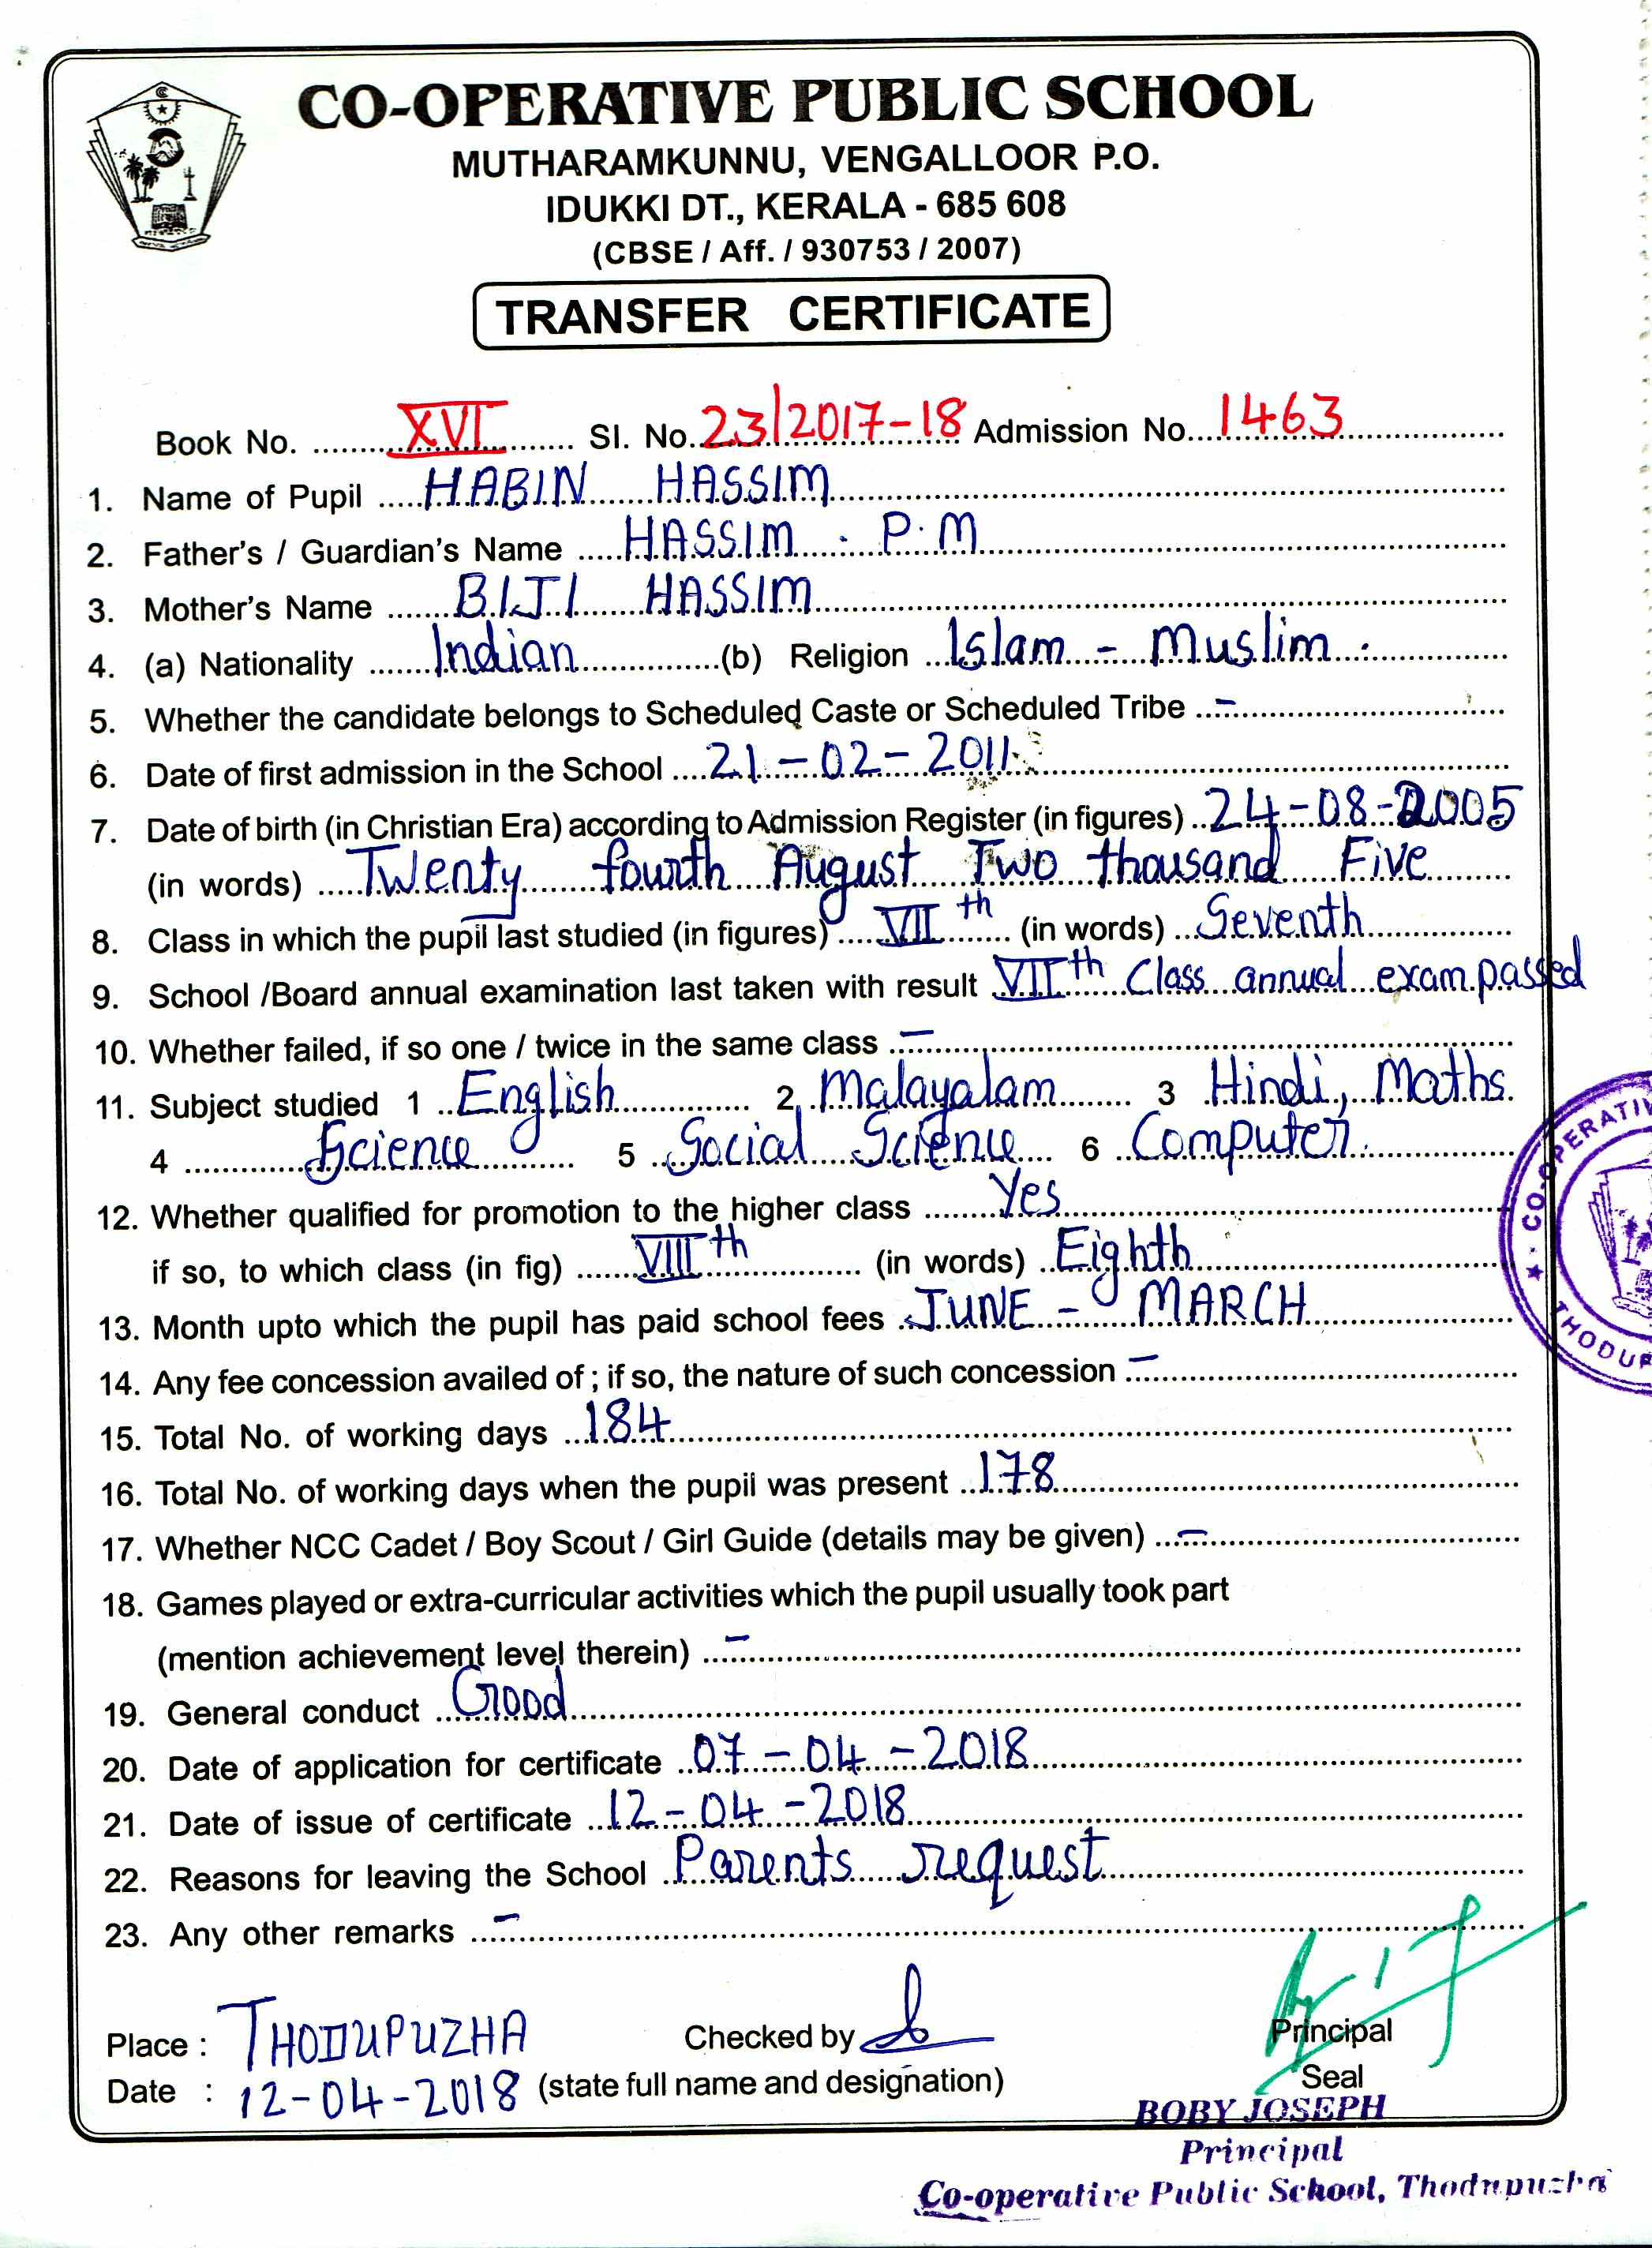 CO-OPERATIVE PUBLIC SCHOOL
MUTHARAMKUNNU, VENGALLOOR P.O.
IDUKKI DT., KERALA - 685 608
(CBSE / Aff. / 930753 / 2007)
TRANSFER CERTIFICATE
Book No. XVI Sl. No. 23/2017-18 Admission No. 1463
1. Name of Pupil HABIN HASSIM
2. Father's / Guardian's Name HASSIM . P.M
3. Mother's Name BIJI HASSIM
4. (a) Nationality Indian (b) Religion Islam - Muslim.
5. Whether the candidate belongs to Scheduled Caste or Scheduled Tribe -
6. Date of first admission in the School 21-02-2011
7. Date of birth (in Christian Era) according to Admission Register (in figures) 24-08-2005
(in words) Twenty fourth August Two thousand Five
8. Class in which the pupil last studied (in figures) VIIth (in words) Seventh
9. School /Board annual examination last taken with result VIIth Class annual exam passed
10. Whether failed, if so one / twice in the same class -
11. Subject studied 1 English 2 Malayalam 3 Hindi, Maths.
4 Science 5 Social Science 6 Computer.
12. Whether qualified for promotion to the higher class Yes
if so, to which class (in fig) VIIIth (in words) Eighth
13. Month upto which the pupil has paid school fees JUNE - MARCH
14. Any fee concession availed of ; if so, the nature of such concession -
15. Total No. of working days 184
16. Total No. of working days when the pupil was present 178
17. Whether NCC Cadet / Boy Scout / Girl Guide (details may be given) -
18. Games played or extra-curricular activities which the pupil usually took part
(mention achievement level therein) -
19. General conduct Good
20. Date of application for certificate 07-04-2018
21. Date of issue of certificate 12-04-2018
22. Reasons for leaving the School Parents request
23. Any other remarks -
Place : THODUPUZHA Checked by Principal
Date : 12-04-2018 (state full name and designation) Seal
BOBY JOSEPH
Principal
Co-operative Public School, Thodupuzha
★ CO-OPERATIV
THODUP